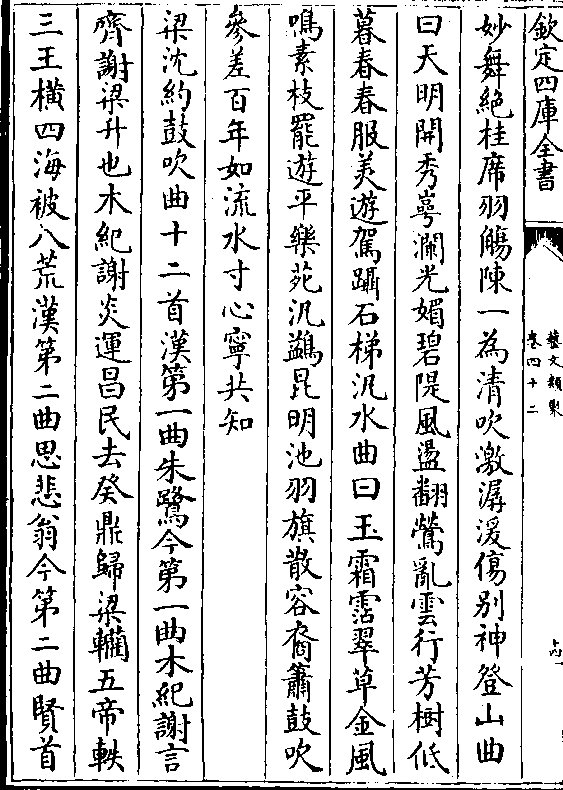 欽定四庫全書
藝文類聚
卷四十二
妙舞絶桂席羽觴陳一為清吹激潺湲傷别神登山曲
曰天明開秀崿瀾光媚碧隄風盪翻鶯亂雲行芳樹低
暮春春服美遊駕躡石梯汎水曲曰玉霜霑翠草金風
鳴素枝罷遊平樂苑汎鷁昆明池羽旗散容裔簫鼓吹
參差百年如流水寸心寧共知
梁沈約鼓吹曲十二首漢第一曲朱鷺今第一曲木紀謝言
齊謝梁升也木紀謝炎運昌民去癸鼎歸梁轥五帝軼
三王横四海被八荒漢第二曲思悲翁今第二曲賢首